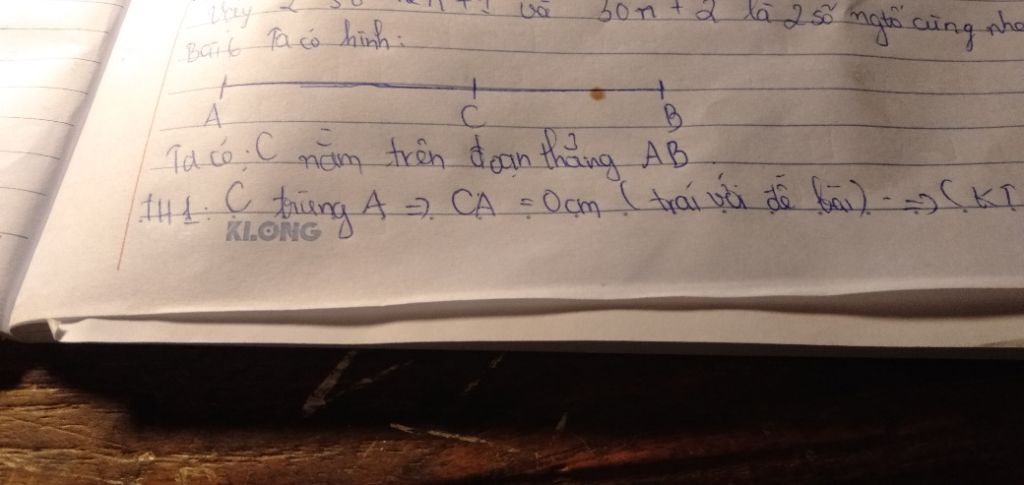 Vậy 2 số n+1 và 30n + 2 là 2 số ngtố cùng nha
Bài 6 Ta có hình:
A C B
Ta có: C nằm trên đoạn thẳng AB
TH1: C trùng A => CA = 0cm (trái với đề bài) => (KT
KLONG